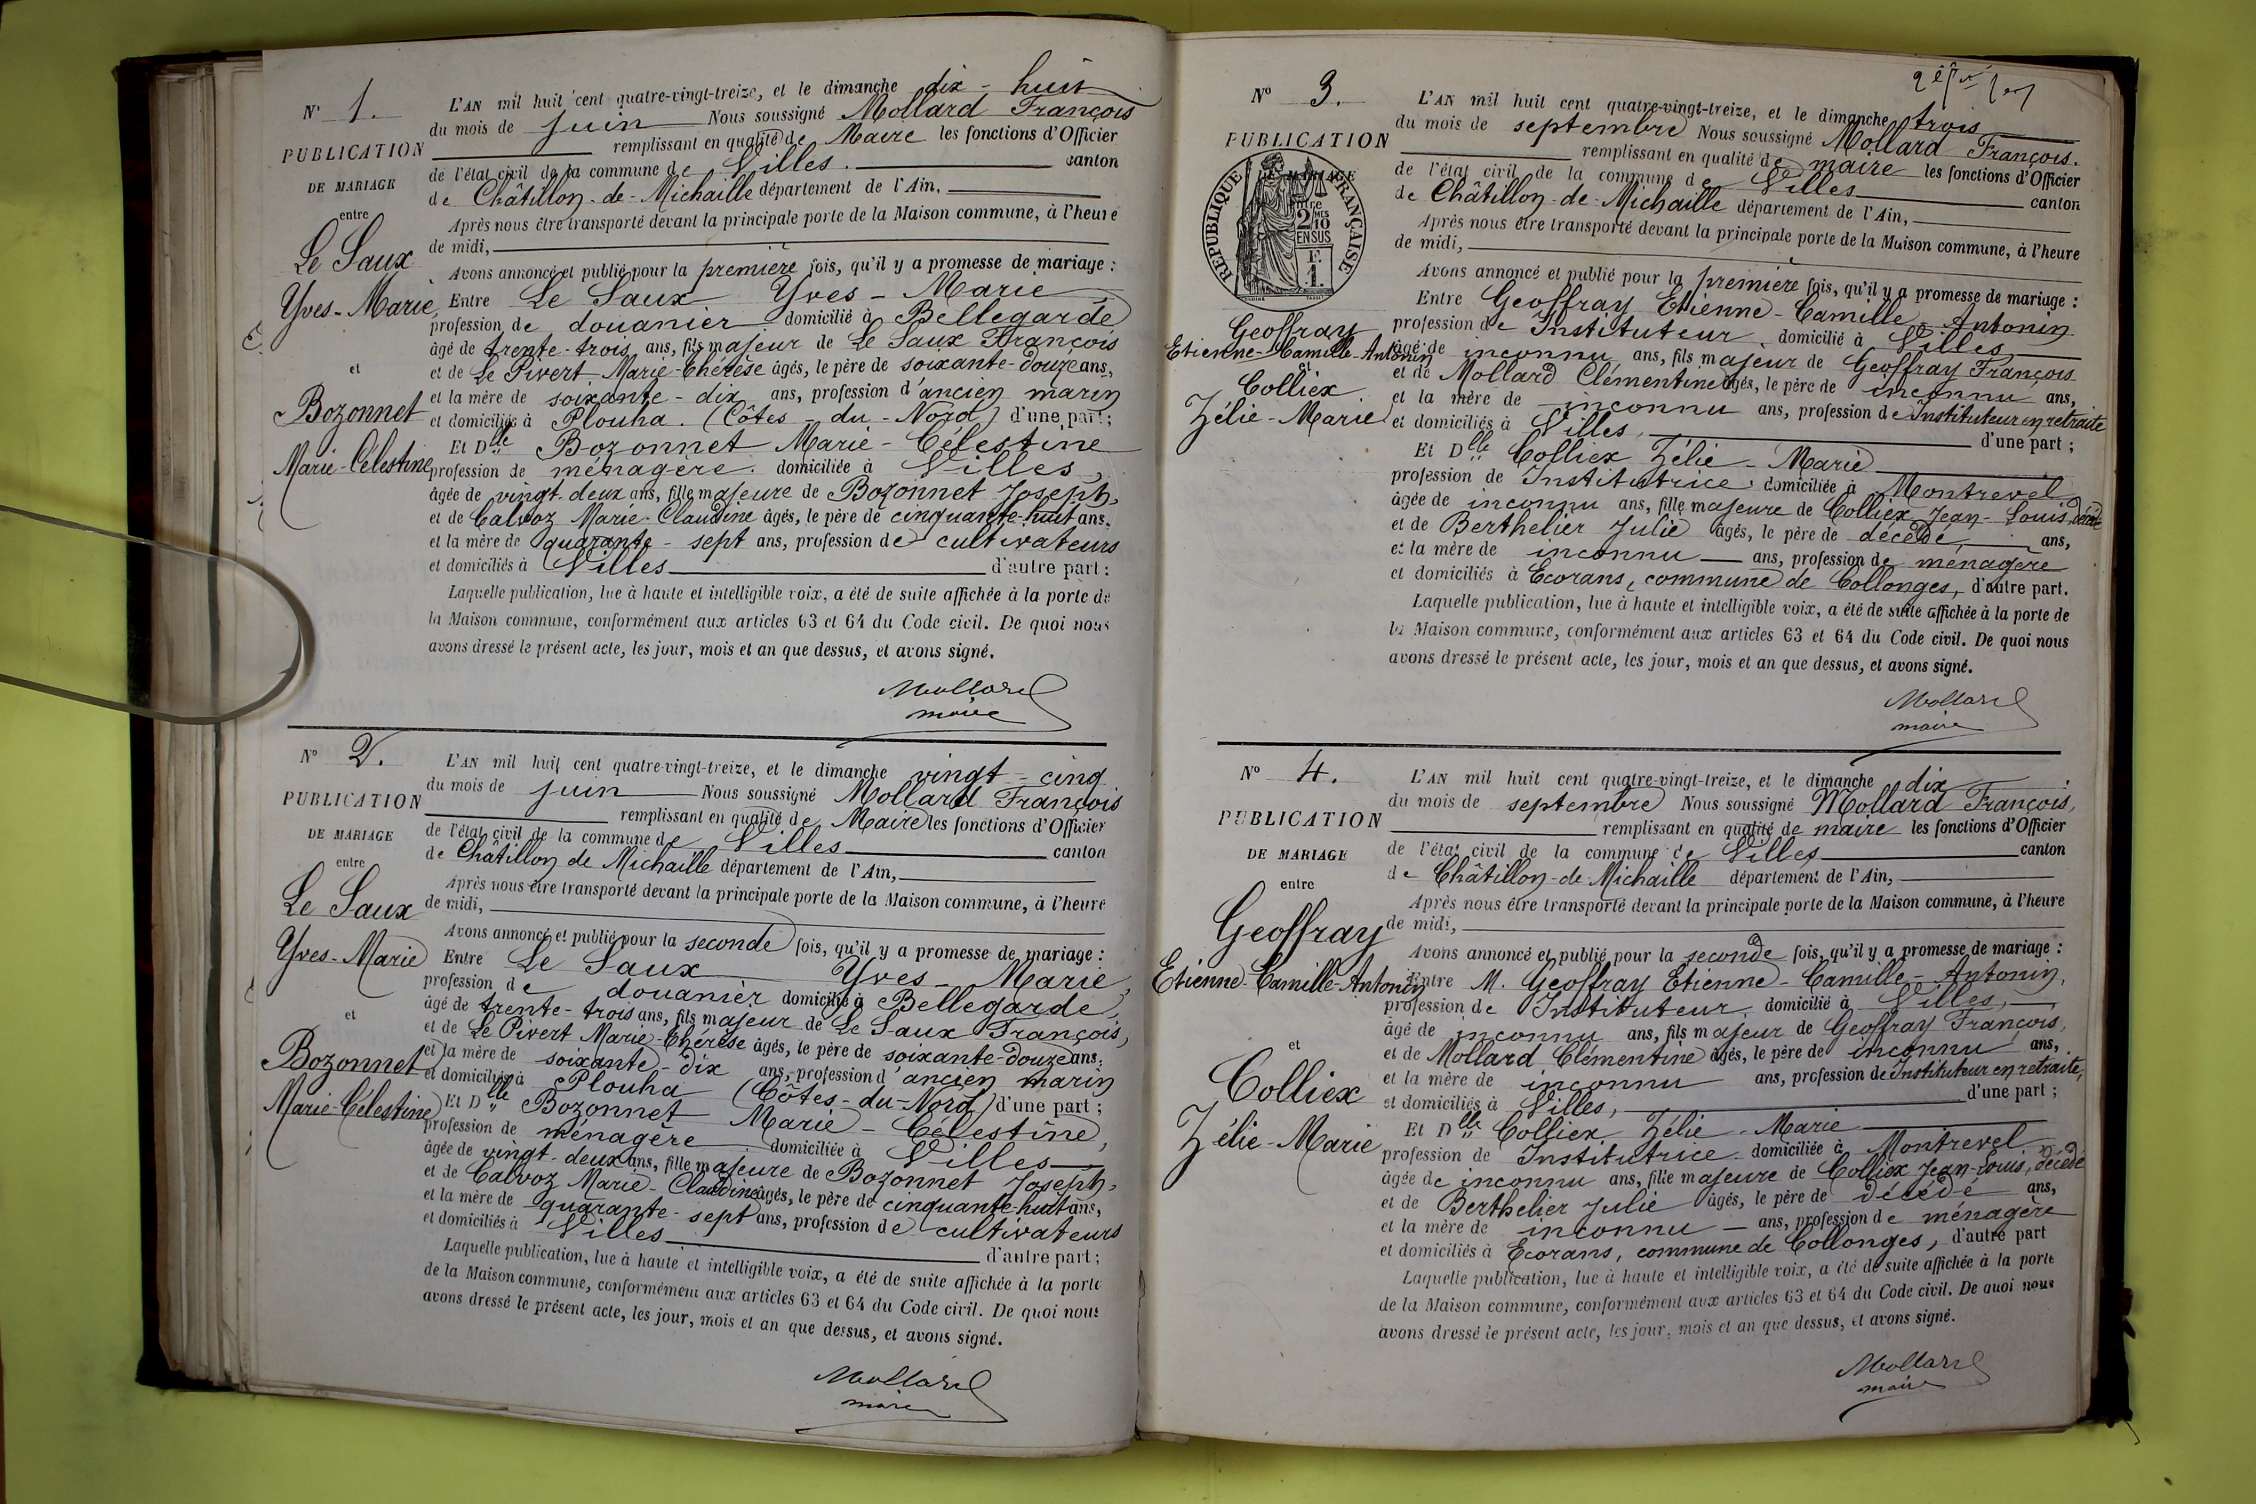 N° 1.
PUBLICATION
DE MARIAGE
entre
Le Saux
Yves-Marie,
et
Bozonnet
Marie-Célestine
L'AN mil huit cent quatre-vingt-treize, et le dimanche dix-huit
du mois de juin Nous soussigné Mollard François
remplissant en qualité de Maire les fonctions d'Officier
de l'état civil de la commune de Villes. canton
de Châtillon-de-Michaille département de l'Ain,
Après nous être transporté devant la principale porte de la Maison commune, à l'heure
de midi,
Avons annoncé et publié pour la première fois, qu'il y a promesse de mariage :
Entre Le Saux Yves-Marie
profession de douanier domicilié à Bellegarde
âgé de trente-trois ans, fils majeur de Le Saux François
et de Le Pivert Marie-Thérèse âgés, le père de soixante-douze ans,
et la mère de soixante-dix ans, profession d'ancien marin
et domiciliés à Plouha. (Côtes-du-Nord) d'une part;
Et Dlle Bozonnet Marie-Célestine
profession de ménagère. domiciliée à Villes,
âgée de vingt-deux ans, fille majeure de Bozonnet Joseph,
et de Calvoz Marie-Claudine âgés, le père de cinquante-huit ans,
et la mère de quarante-sept ans, profession de cultivateurs
et domiciliés à Villes d'autre part:
Laquelle publication, lue à haute et intelligible voix, a été de suite affichée à la porte de
la Maison commune, conformément aux articles 63 et 64 du Code civil. De quoi nous
avons dressé le présent acte, les jour, mois et an que dessus, et avons signé.
Mollard
maire
N° 2.
PUBLICATION
DE MARIAGE
entre
Le Saux
Yves-Marie
et
Bozonnet
Marie-Célestine
L'AN mil huit cent quatre-vingt-treize, et le dimanche vingt-cinq
du mois de juin Nous soussigné Mollard François
remplissant en qualité de Maire les fonctions d'Officier
de l'état civil de la commune de Villes canton
de Châtillon de Michaille département de l'Ain,
Après nous être transporté devant la principale porte de la Maison commune, à l'heure
de midi,
Avons annoncé et publié pour la seconde fois, qu'il y a promesse de mariage :
Entre Le Saux Yves-Marie,
profession de douanier domicilié à Bellegarde,
âgé de trente-trois ans, fils majeur de Le Saux François,
et de Le Pivert Marie-Thérèse âgés, le père de soixante-douze ans,
et la mère de soixante-dix ans, profession d'ancien marin
et domiciliés à Plouha (Côtes-du-Nord) d'une part ;
Et Dlle Bozonnet Marie-Célestine,
profession de ménagère domiciliée à Villes
âgée de vingt-deux ans, fille majeure de Bozonnet Joseph,
et de Calvoz Marie-Claudine âgés, le père de cinquante-huit ans,
et la mère de quarante-sept ans, profession de cultivateurs
et domiciliés à Villes d'autre part ;
Laquelle publication, lue à haute et intelligible voix, a été de suite affichée à la porte
de la Maison commune, conformément aux articles 63 et 64 du Code civil. De quoi nous
avons dressé le présent acte, les jour, mois et an que dessus, et avons signé.
Mollard
maire
N° 3.
PUBLICATION
DE MARIAGE
entre
RÉPUBLIQUE FRANÇAISE
2 MES 10
EN SUS
F.
1.
Geoffray
Etienne-Camille-Antonin
et
Colliex
Zélie-Marie
L'AN mil huit cent quatre-vingt-treize, et le dimanche trois
du mois de septembre Nous soussigné Mollard François.
remplissant en qualité de maire les fonctions d'Officier
de l'état civil de la commune de Villes canton
de Châtillon-de-Michaille département de l'Ain,
Après nous être transporté devant la principale porte de la Maison commune, à l'heure
de midi,
Avons annoncé et publié pour la première fois, qu'il y a promesse de mariage :
Entre Geoffray Etienne-Camille-Antonin
profession de Instituteur, domicilié à Villes
âgé de inconnu ans, fils majeur de Geoffray François
et de Mollard Clémentine âgés, le père de inconnu ans,
et la mère de inconnu ans, profession de Instituteur en retraite
et domiciliés à Villes, d'une part ;
Et Dlle Colliex Zélie-Marie
profession de Institutrice. domiciliée à Montrevel
âgée de inconnu ans, fille majeure de Colliex Jean-Louis, décédé
et de Berthelier Julie âgés, le père de décédé ans,
et la mère de inconnu ans, profession de ménagère
et domiciliés à Ecorans, commune de Collonges, d'autre part.
Laquelle publication, lue à haute et intelligible voix, a été de suite affichée à la porte de
la Maison commune, conformément aux articles 63 et 64 du Code civil. De quoi nous
avons dressé le présent acte, les jour, mois et an que dessus, et avons signé.
Mollard
maire
N° 4.
PUBLICATION
DE MARIAGE
entre
Geoffray
Etienne-Camille-Antonin
et
Colliex
Zélie-Marie
L'AN mil huit cent quatre-vingt-treize, et le dimanche dix
du mois de septembre Nous soussigné Mollard François,
remplissant en qualité de maire les fonctions d'Officier
de l'état civil de la commune de Villes canton
de Châtillon-de-Michaille département de l'Ain,
Après nous être transporté devant la principale porte de la Maison commune, à l'heure
de midi,
Avons annoncé et publié pour la seconde fois, qu'il y a promesse de mariage :
Entre M. Geoffray Etienne-Camille-Antonin,
profession de Instituteur, domicilié à Villes,
âgé de inconnu ans, fils majeur de Geoffray François,
et de Mollard Clémentine âgés, le père de inconnu ans,
et la mère de inconnu ans, profession de Instituteur en retraite,
et domiciliés à Villes, d'une part ;
Et Dlle Colliex Zélie-Marie
profession de Institutrice domiciliée à Montrevel
âgée de inconnu ans, fille majeure de Colliex Jean-Louis, décédé
et de Berthelier Julie âgés, le père de décédé ans,
et la mère de inconnu ans, profession de ménagère
et domiciliés à Ecorans, commune de Collonges, d'autre part
Laquelle publication, lue à haute et intelligible voix, a été de suite affichée à la porte
de la Maison commune, conformément aux articles 63 et 64 du Code civil. De quoi nous
avons dressé le présent acte, les jour, mois et an que dessus, et avons signé.
Mollard
maire